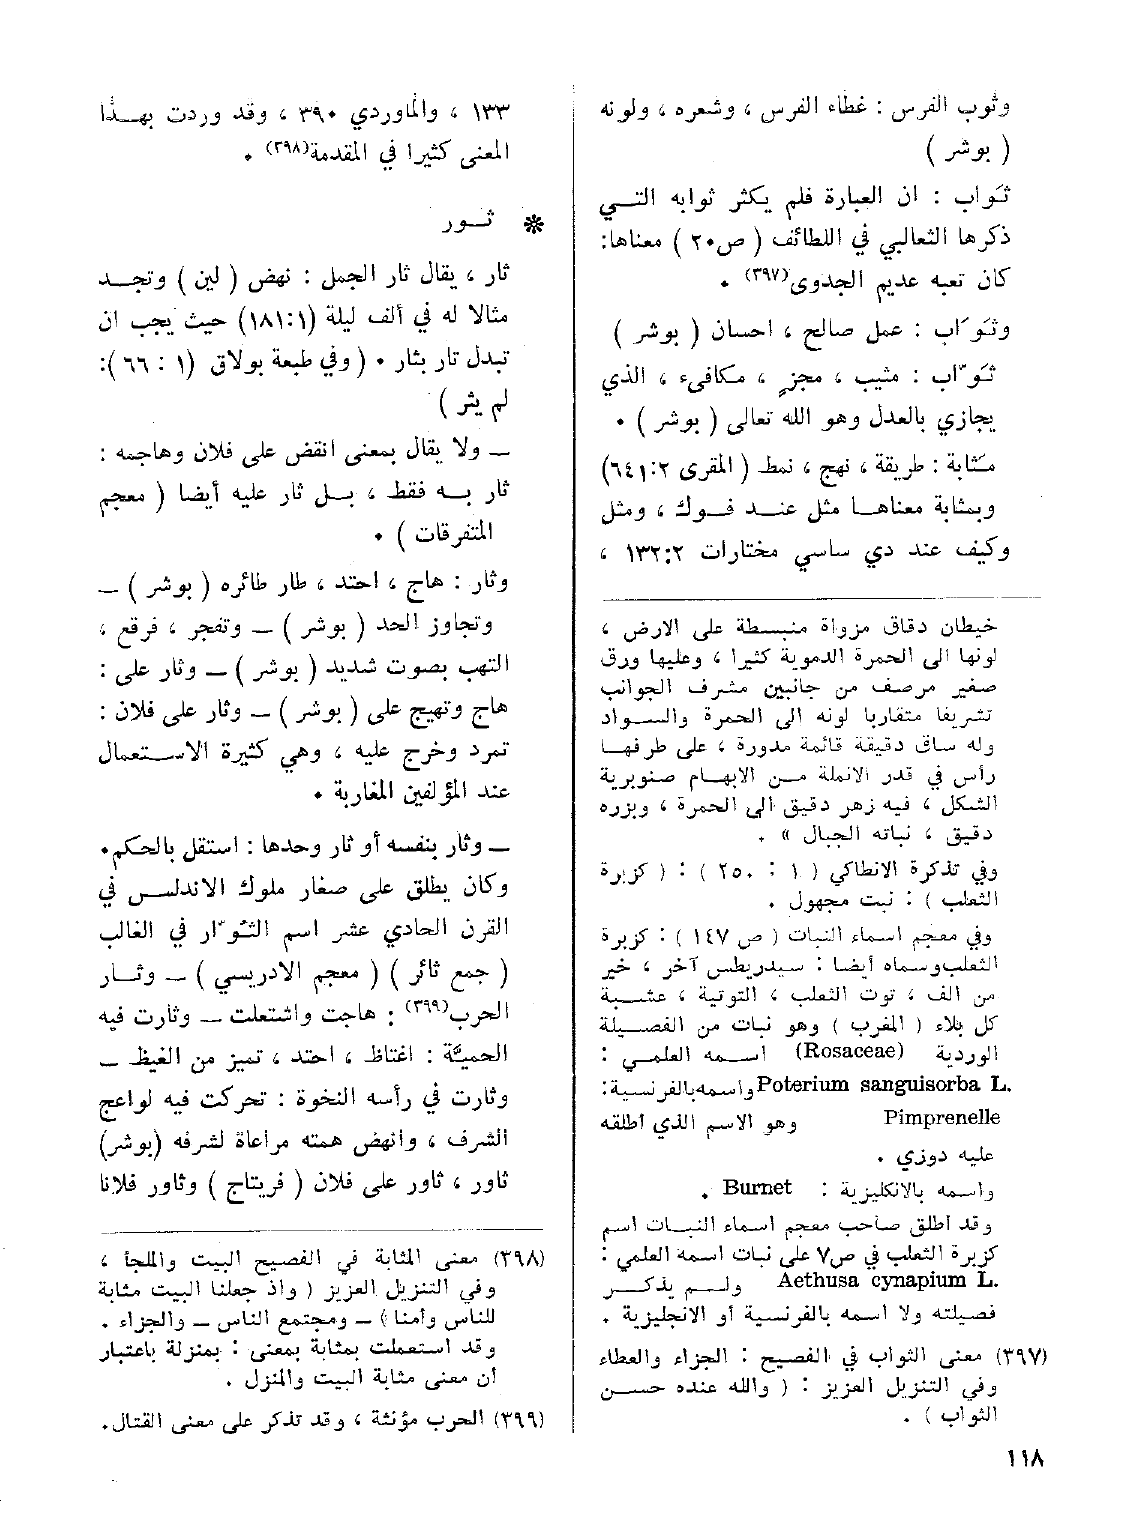 وثوب الفرس : غطاء الفرس ، وشعره ، ولونه
( بوشر )
ثَواب : ان العبارة فلم يكثر ثوابه التــي
ذكرها الثعالبي في اللطائف ( ص٢٠ ) معناها:
كان تعبه عديم الجدوى(٣٩٧) ٠
وثَواب : عمل صالح ، احسان ( بوشر )
ثَوّاب : مثيب ، مجزٍ ، مكافىء ، الذي
يجازي بالعدل وهو الله تعالى ( بوشر ) ٠
مَثابة : طريقة ، نهج ، نمط ( المقرى ٢:٦٤١)
وبمثابة معناهــا مثل عنــد فــوك ، ومثل
وكيف عند دي ساسي مختارات ٢:١٣٢ ،
خيطان دقاق مزواة منبسطة على الارض ،
لونها الى الحمرة الدموية كثيرا ، وعليها ورق
صغير مرصف من جانبين مشرف الجوانب
تشريفا متقاربا لونه الى الحمرة والسـواد
وله ساق دقيقة قائمة مدورة ، على طرفهـا
رأس في قدر الانملة مــن الابهـام صنوبرية
الشكل ، فيه زهر دقيق الى الحمرة ، وبزره
دقيق ، نباته الجبال » .
وفي تذكرة الانطاكي ( ١ : ٢٥٠ ) : ( كزبرة
الثعلب ) : نبت مجهول .
وفي معجم اسماء النبات ( ص ١٤٧ ) : كزبرة
الثعلب وسماه أيضا : سيدريطس آخر ، خير
من الف ، توت الثعلب ، التوتية ، عشــبة
كل بلاء ( المغرب ) وهو نبات من الفصـيلة
الوردية (Rosaceae) اســمه العلمــي :
Poterium sanguisorba L. واسمه بالفرنسـية:
Pimprenelle وهو الاسم الذي أطلقه
عليه دوزي .
واسمه بالانكليزية : Burnet .
وقد أطلق صاحب معجم أسماء النبـات اسم
كزبرة الثعلب في ص٧ على نبات اسمه العلمي :
Aethusa cynapium L. ولــم يذكــر
فصيلته ولا اسمه بالفرنسية أو الانجليزية .
(٣٩٧) معنى الثواب في الفصيح : الجزاء والعطاء
وفي التنزيل العزيز : ( والله عنده حســن
الثواب ) .
١٣٣ ، والماوردي ٣٩٠ ، وقد وردت بهــذا
المعنى كثيرا في المقدمة(٣٩٨) ٠
* ثــور
ثار ، يقال ثار الجمل : نهض ( لين ) وتجــد
مثالا له في ألف ليلة (١:١٨١) حيث يجب ان
تبدل تار بثار ٠ ( وفي طبعة بولاق (١ : ٦٦ ):
لم يثر )
— ولا يقال بمعنى انقض على فلان وهاجمه :
ثار بــه فقط ، بــل ثار عليه أيضا ( معجم
المتفرقات ) ٠
وثار : هاج ، احتد ، طار طائره ( بوشر ) —
وتجاوز الحد ( بوشر ) — وتفجر ، فرقع ،
التهب بصوت شديد ( بوشر ) — وثار على :
هاج وتهيج على ( بوشر ) — وثار على فلان :
تمرد وخرج عليه ، وهي كثيرة الاسـتعمال
عند المؤلفين المغاربة ٠
— وثار بنفسه أو ثار وحدها : استقل بالحكم٠
وكان يطلق على صغار ملوك الاندلــس في
القرن الحادي عشر اسم الثُوّار في الغالب
( جمع ثائر ) ( معجم الادريسي ) — وثــار
الحرب(٣٩٩) : هاجت واشتعلت — وثارت فيه
الحميَّة : اغتاظ ، احتد ، تميز من الغيظ —
وثارت في رأسه النخوة : تحركت فيه لواعج
الشرف ، وانهض همته مراعاة لشرفه (بوشر)
ثاور ، ثاور على فلان ( فريتاج ) وثاور فلانا
(٣٩٨) معنى المثابة في الفصيح البيت والملجأ ،
وفي التنزيل العزيز ( واذ جعلنا البيت مثابة
للناس وأمنا ) — ومجتمع الناس — والجزاء .
وقد استعملت بمثابة بمعنى : بمنزلة باعتبار
أن معنى مثابة البيت والمنزل .
(٣٩٩) الحرب مؤنثة ، وقد تذكر على معنى القتال.
١١٨